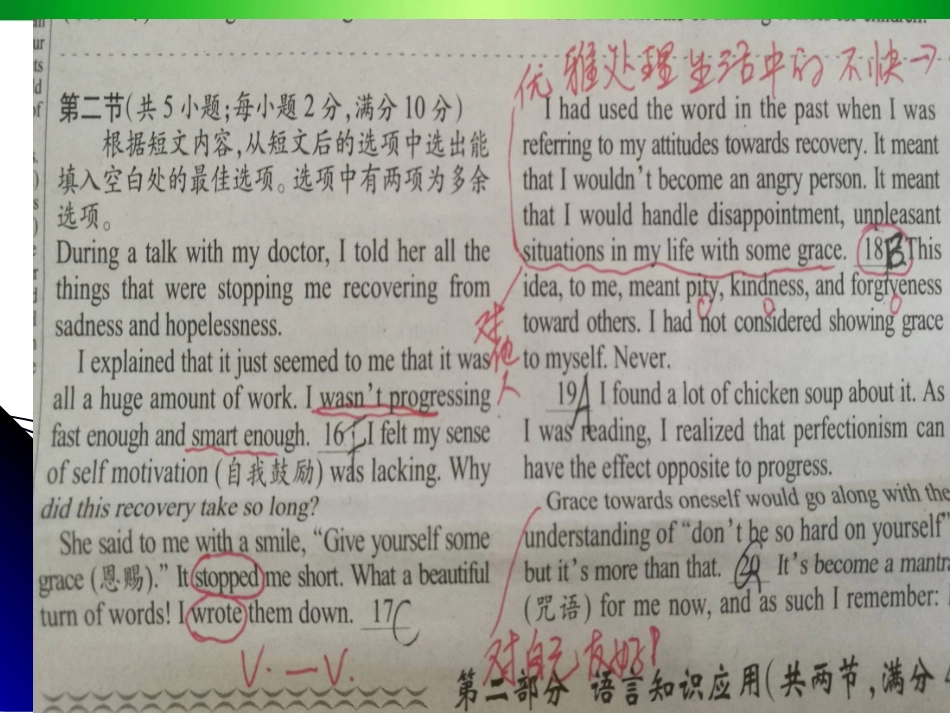 第二节(共5小题;每小题2分,满分10分)
根据短文内容,从短文后的选项中选出能
填入空白处的最佳选项。选项中有两项为多余
选项。
During a talk with my doctor, I told her all the
things that were stopping me recovering from
sadness and hopelessness.
I explained that it just seemed to me that it was
all a huge amount of work. I wasn't progressing
fast enough and smart enough. 16 I felt my sense
of self motivation (自我鼓励) was lacking. Why
did this recovery take so long?
She said to me with a smile, “Give yourself some
grace (恩赐).” It stopped me short. What a beautiful
turn of words! I wrote them down. 17 C
V. — V.
优雅处理生活中的不快→
I had used the word in the past when I was
referring to my attitudes towards recovery. It meant
that I wouldn't become an angry person. It meant
that I would handle disappointment, unpleasant
situations in my life with some grace. 18 B This
idea, to me, meant pity, kindness, and forgiveness
toward others. I had not considered showing grace
to myself. Never.
对他人
19 A I found a lot of chicken soup about it. As
I was reading, I realized that perfectionism can
have the effect opposite to progress.
Grace towards oneself would go along with the
understanding of “don't be so hard on yourself”
but it's more than that. 20 It's become a mantra
(咒语) for me now, and as such I remember:
对自己友好!
第二部分 语言知识应用(共两节,满分